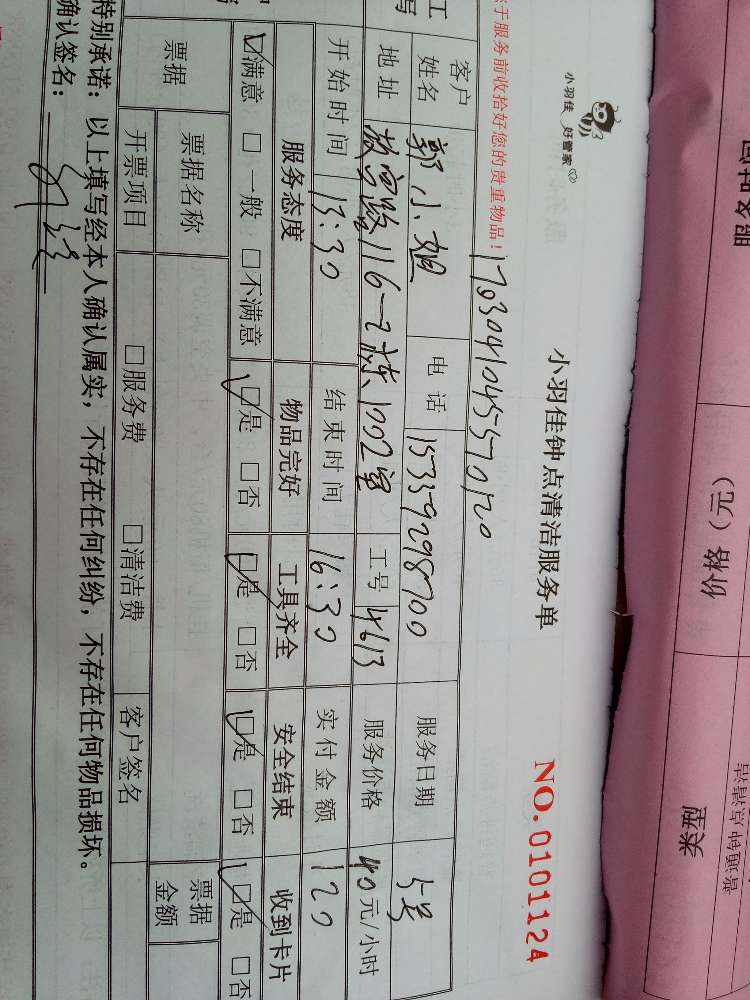 小羽佳 好管家
小羽佳钟点清洁服务单
NO.0101124
于服务前收拾好您的贵重物品！
客户姓名 郭小姐 电话 15359298700 服务日期 5号
地址 故宫路116-2栋1002室 工号 4613 服务价格 40元/小时
开始时间 13:30 结束时间 16:30 实付金额 120
服务态度 物品完好 工具齐全 安全结束 收到卡片
☑满意 □一般 □不满意 ☑是 □否 ☑是 □否 ☑是 □否 ☑是 □否
票据 票据名称 票据金额
开票项目 □服务费 □清洁费 客户签名
特别承诺：以上填写经本人确认属实，不存在任何纠纷，不存在任何物品损坏。
确认签名：
价格（元）
类型